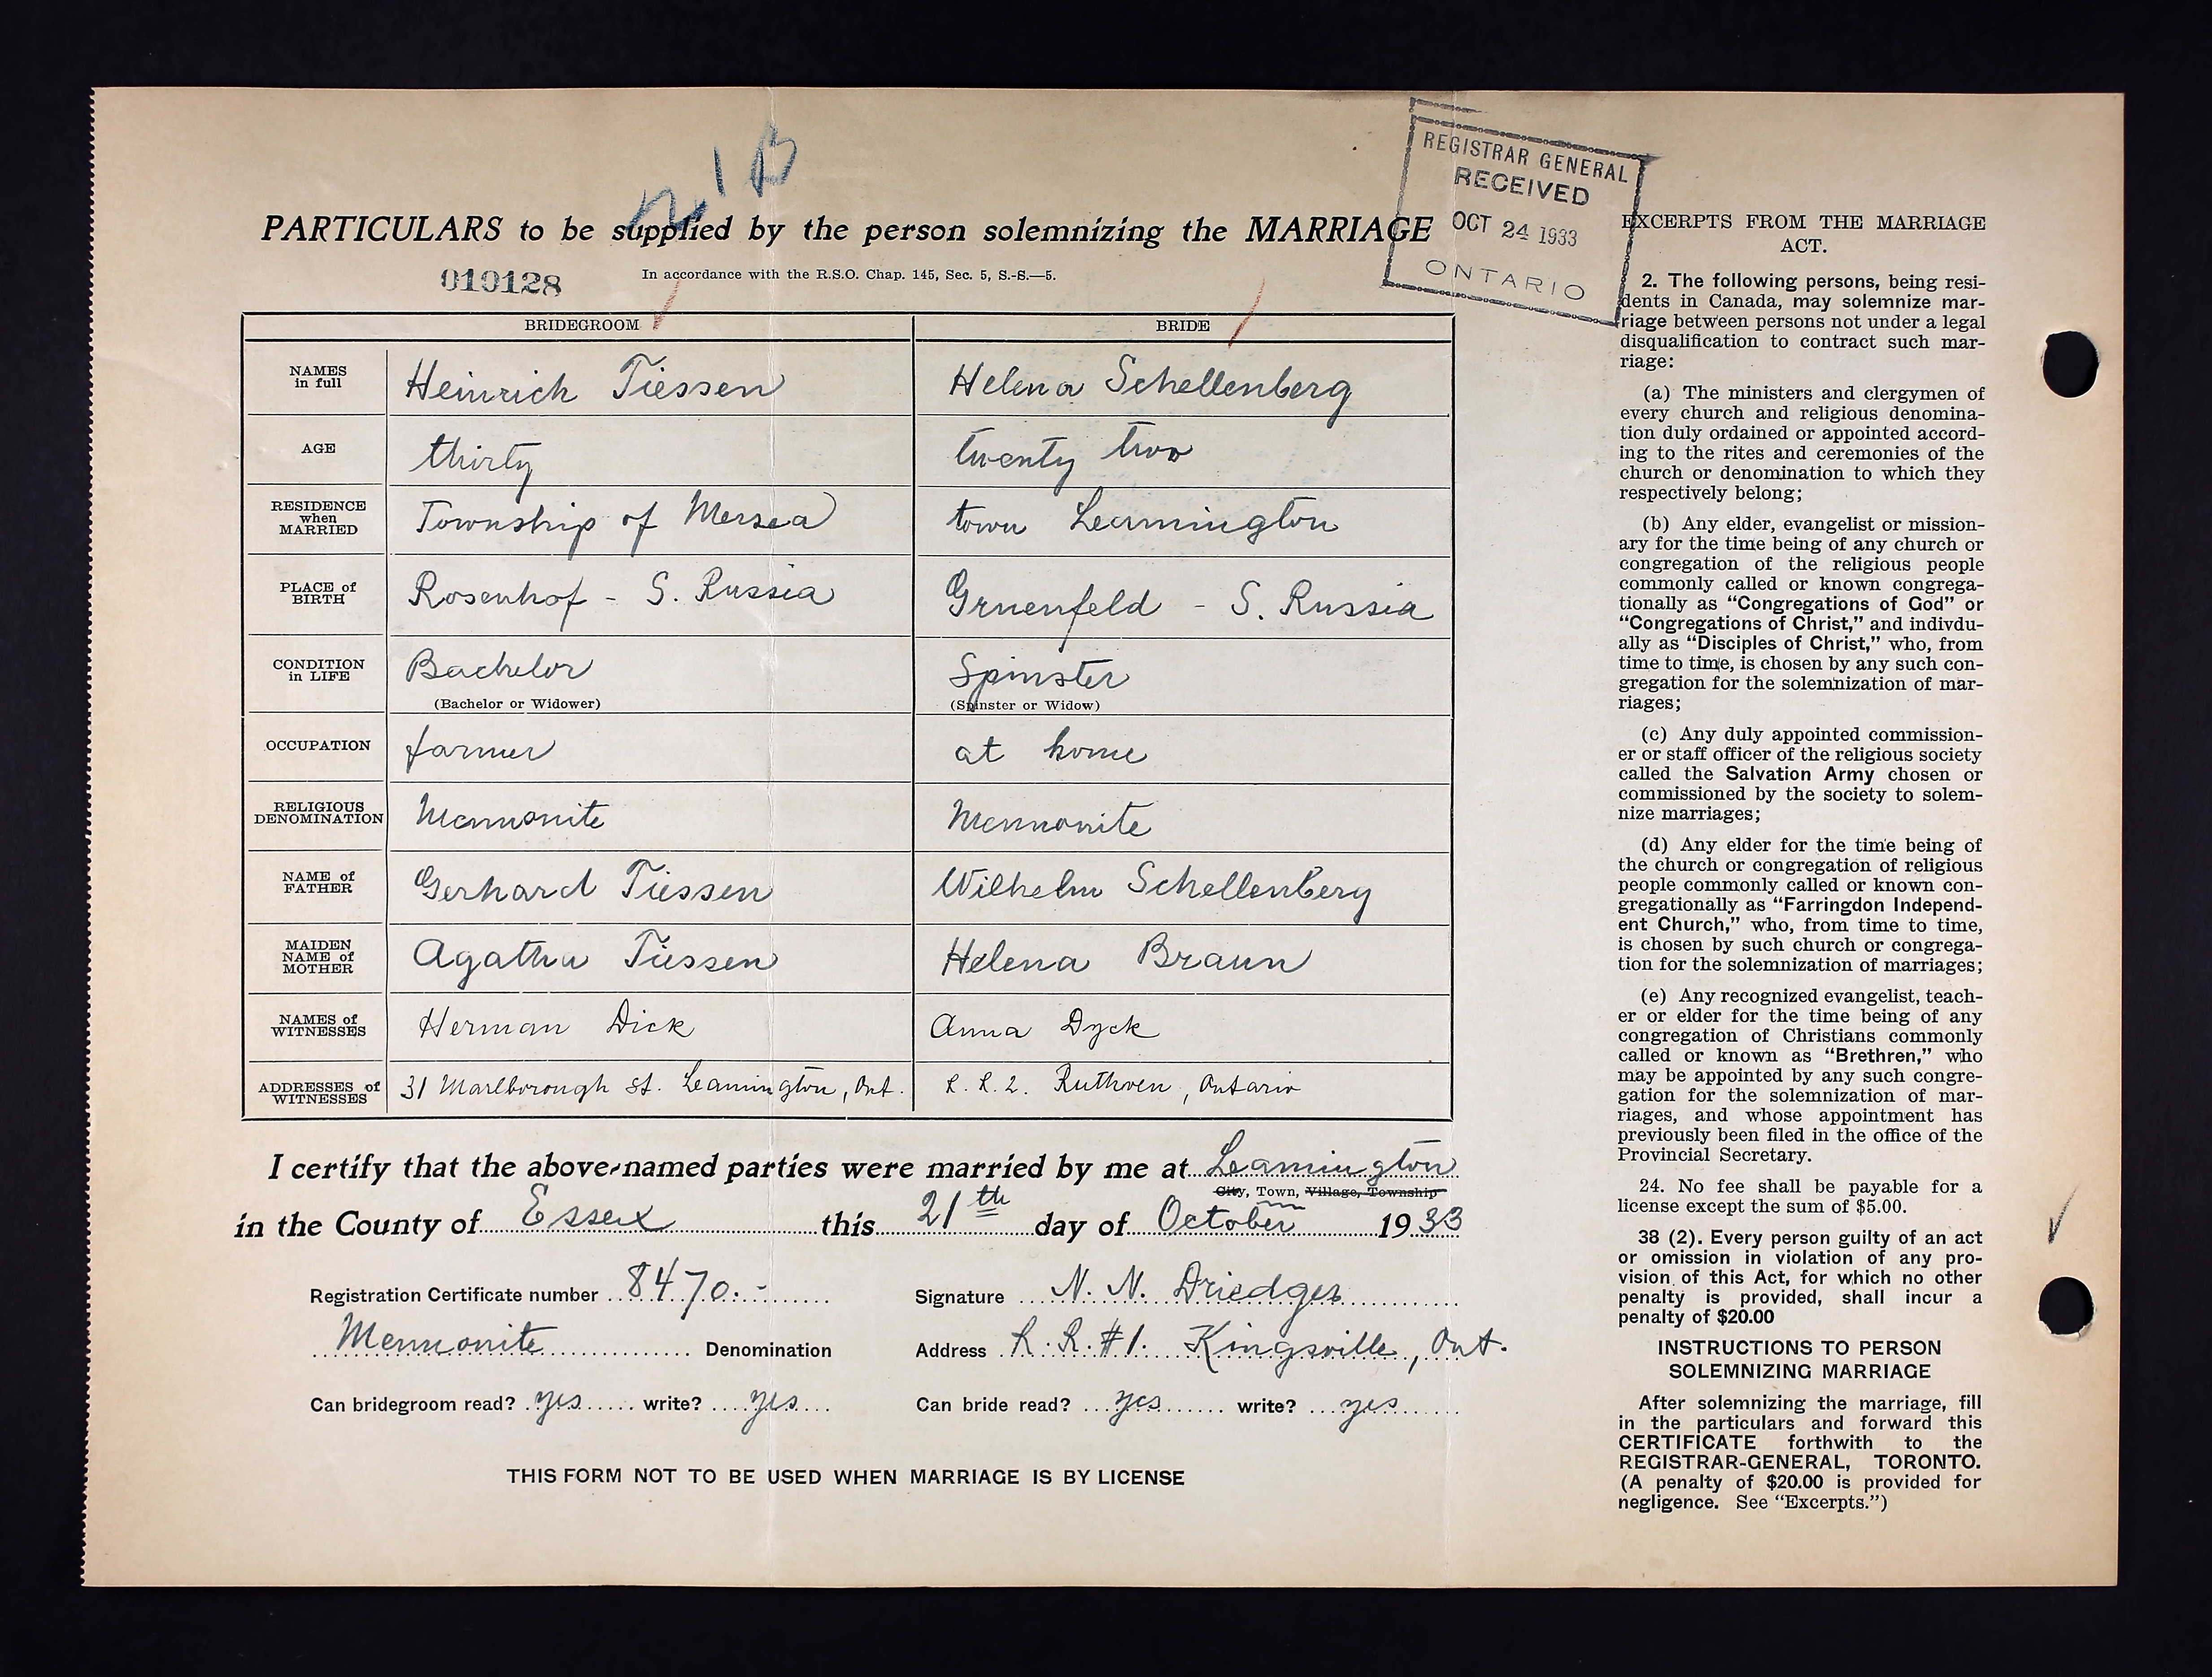 n' B
REGISTRAR GENERAL
RECEIVED
OCT 24 1933
ONTARIO
PARTICULARS to be supplied by the person solemnizing the MARRIAGE
010128
In accordance with the R.S.O. Chap. 145, Sec. 5, S.-S.—5.
BRIDEGROOM BRIDE
NAMES in full Heinrich Tiessen Helena Schellenberg
AGE thirty twenty two
RESIDENCE when MARRIED Township of Mersea town Leamington
PLACE of BIRTH Rosenhof - S. Russia Gruenfeld - S. Russia
CONDITION in LIFE Bachelor Spinster
(Bachelor or Widower) (Spinster or Widow)
OCCUPATION farmer at home
RELIGIOUS DENOMINATION Mennonite Mennonite
NAME of FATHER Gerhard Tiessen Wilhelm Schellenberg
MAIDEN NAME of MOTHER Agatha Tiessen Helena Braun
NAMES of WITNESSES Herman Dick Anna Dyck
ADDRESSES of WITNESSES 31 Marlborough st. Leamington, Ont. R. R. 2. Ruthven, Ontario
I certify that the above-named parties were married by me at Leamington
City, Town, Village, Township
in the County of Essex this 21th day of October 1933
Registration Certificate number 8470.- Signature N. N. Driedger
Mennonite Denomination Address R. R. #1. Kingsville, Ont.
Can bridegroom read? yes write? yes Can bride read? yes write? yes
THIS FORM NOT TO BE USED WHEN MARRIAGE IS BY LICENSE
EXCERPTS FROM THE MARRIAGE
ACT.
2. The following persons, being resi-
dents in Canada, may solemnize mar-
riage between persons not under a legal
disqualification to contract such mar-
riage:
(a) The ministers and clergymen of
every church and religious denomina-
tion duly ordained or appointed accord-
ing to the rites and ceremonies of the
church or denomination to which they
respectively belong;
(b) Any elder, evangelist or mission-
ary for the time being of any church or
congregation of the religious people
commonly called or known congrega-
tionally as “Congregations of God” or
“Congregations of Christ,” and indivdu-
ally as “Disciples of Christ,” who, from
time to time, is chosen by any such con-
gregation for the solemnization of mar-
riages;
(c) Any duly appointed commission-
er or staff officer of the religious society
called the Salvation Army chosen or
commissioned by the society to solem-
nize marriages;
(d) Any elder for the time being of
the church or congregation of religious
people commonly called or known con-
gregationally as “Farringdon Independ-
ent Church,” who, from time to time,
is chosen by such church or congrega-
tion for the solemnization of marriages;
(e) Any recognized evangelist, teach-
er or elder for the time being of any
congregation of Christians commonly
called or known as “Brethren,” who
may be appointed by any such congre-
gation for the solemnization of mar-
riages, and whose appointment has
previously been filed in the office of the
Provincial Secretary.
24. No fee shall be payable for a
license except the sum of $5.00.
38 (2). Every person guilty of an act
or omission in violation of any pro-
vision of this Act, for which no other
penalty is provided, shall incur a
penalty of $20.00
INSTRUCTIONS TO PERSON
SOLEMNIZING MARRIAGE
After solemnizing the marriage, fill
in the particulars and forward this
CERTIFICATE forthwith to the
REGISTRAR-GENERAL, TORONTO.
(A penalty of $20.00 is provided for
negligence. See “Excerpts.”)